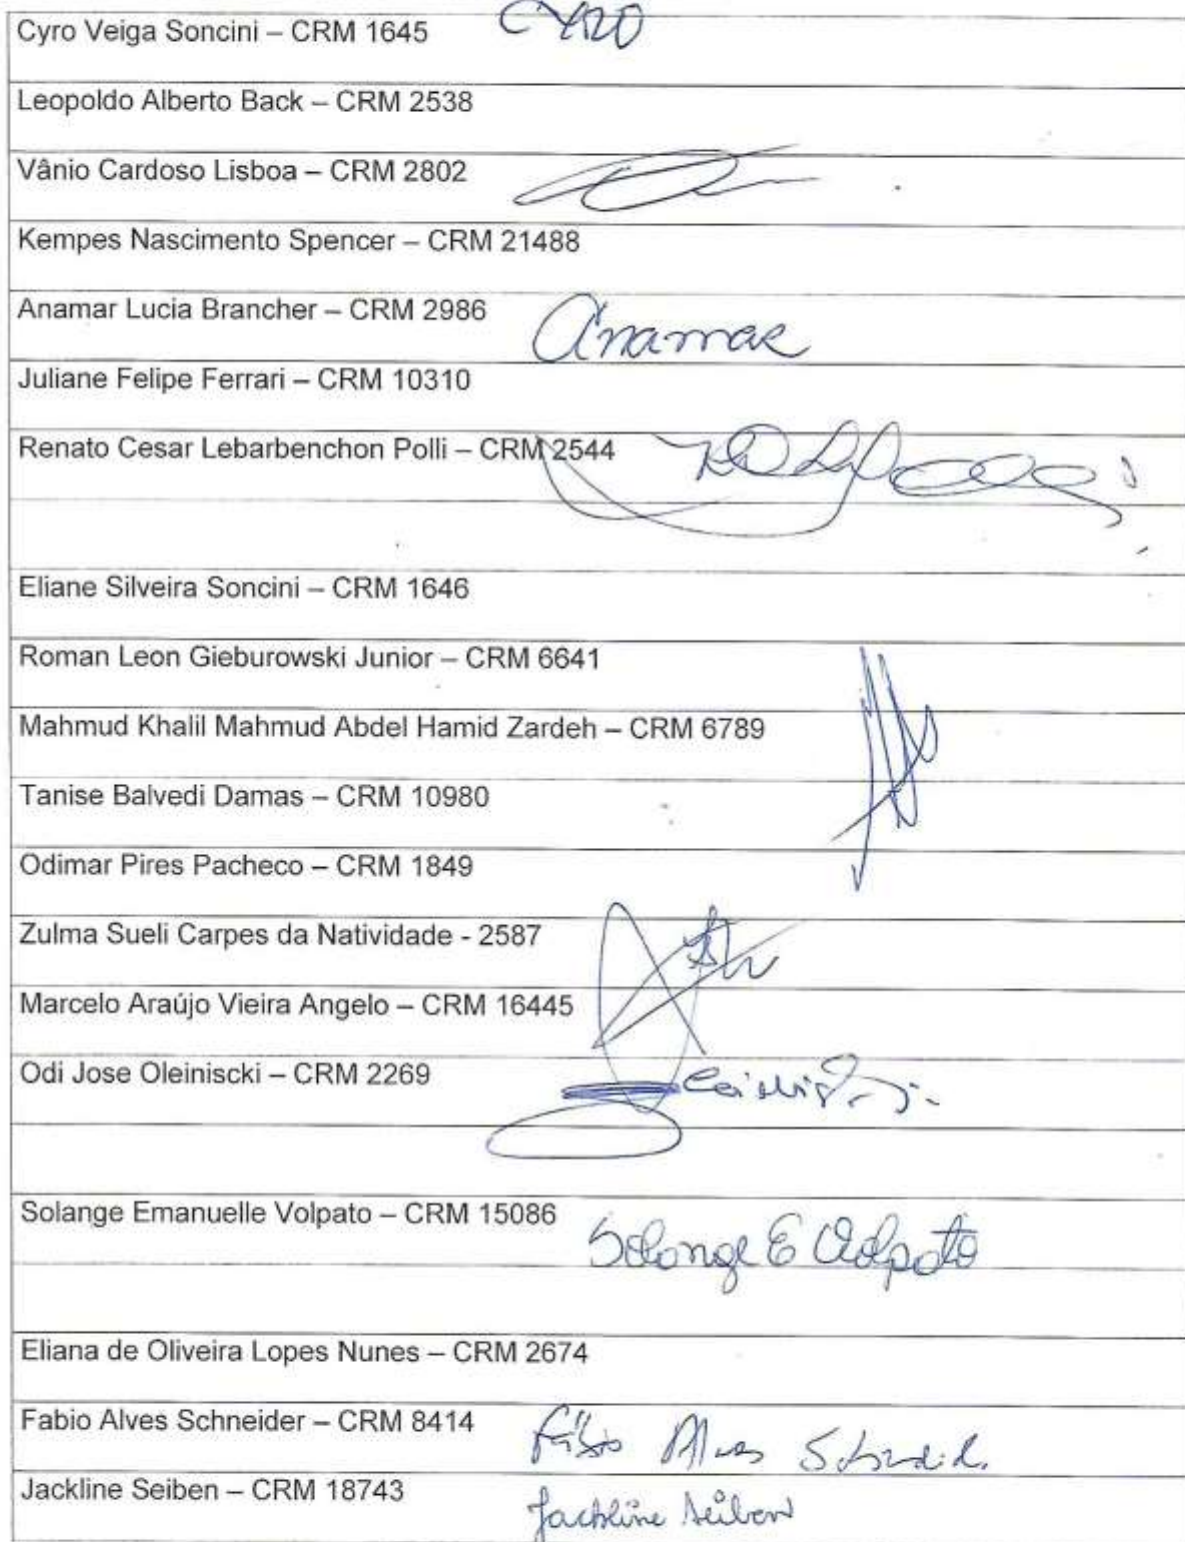 Cyro Veiga Soncini – CRM 1645 CYRO
Leopoldo Alberto Back – CRM 2538
Vânio Cardoso Lisboa – CRM 2802
Kempes Nascimento Spencer – CRM 21488
Anamar Lucia Brancher – CRM 2986 Anamar
Juliane Felipe Ferrari – CRM 10310
Renato Cesar Lebarbenchon Polli – CRM 2544
Eliane Silveira Soncini – CRM 1646
Roman Leon Gieburowski Junior – CRM 6641
Mahmud Khalil Mahmud Abdel Hamid Zardeh – CRM 6789
Tanise Balvedi Damas – CRM 10980
Odimar Pires Pacheco – CRM 1849
Zulma Sueli Carpes da Natividade - 2587
Marcelo Araújo Vieira Angelo – CRM 16445
Odi Jose Oleiniscki – CRM 2269
Solange Emanuelle Volpato – CRM 15086 Solange E Volpato
Eliana de Oliveira Lopes Nunes – CRM 2674
Fabio Alves Schneider – CRM 8414 Fábio Alves Schneider
Jackline Seiben – CRM 18743 Jackline Seiben